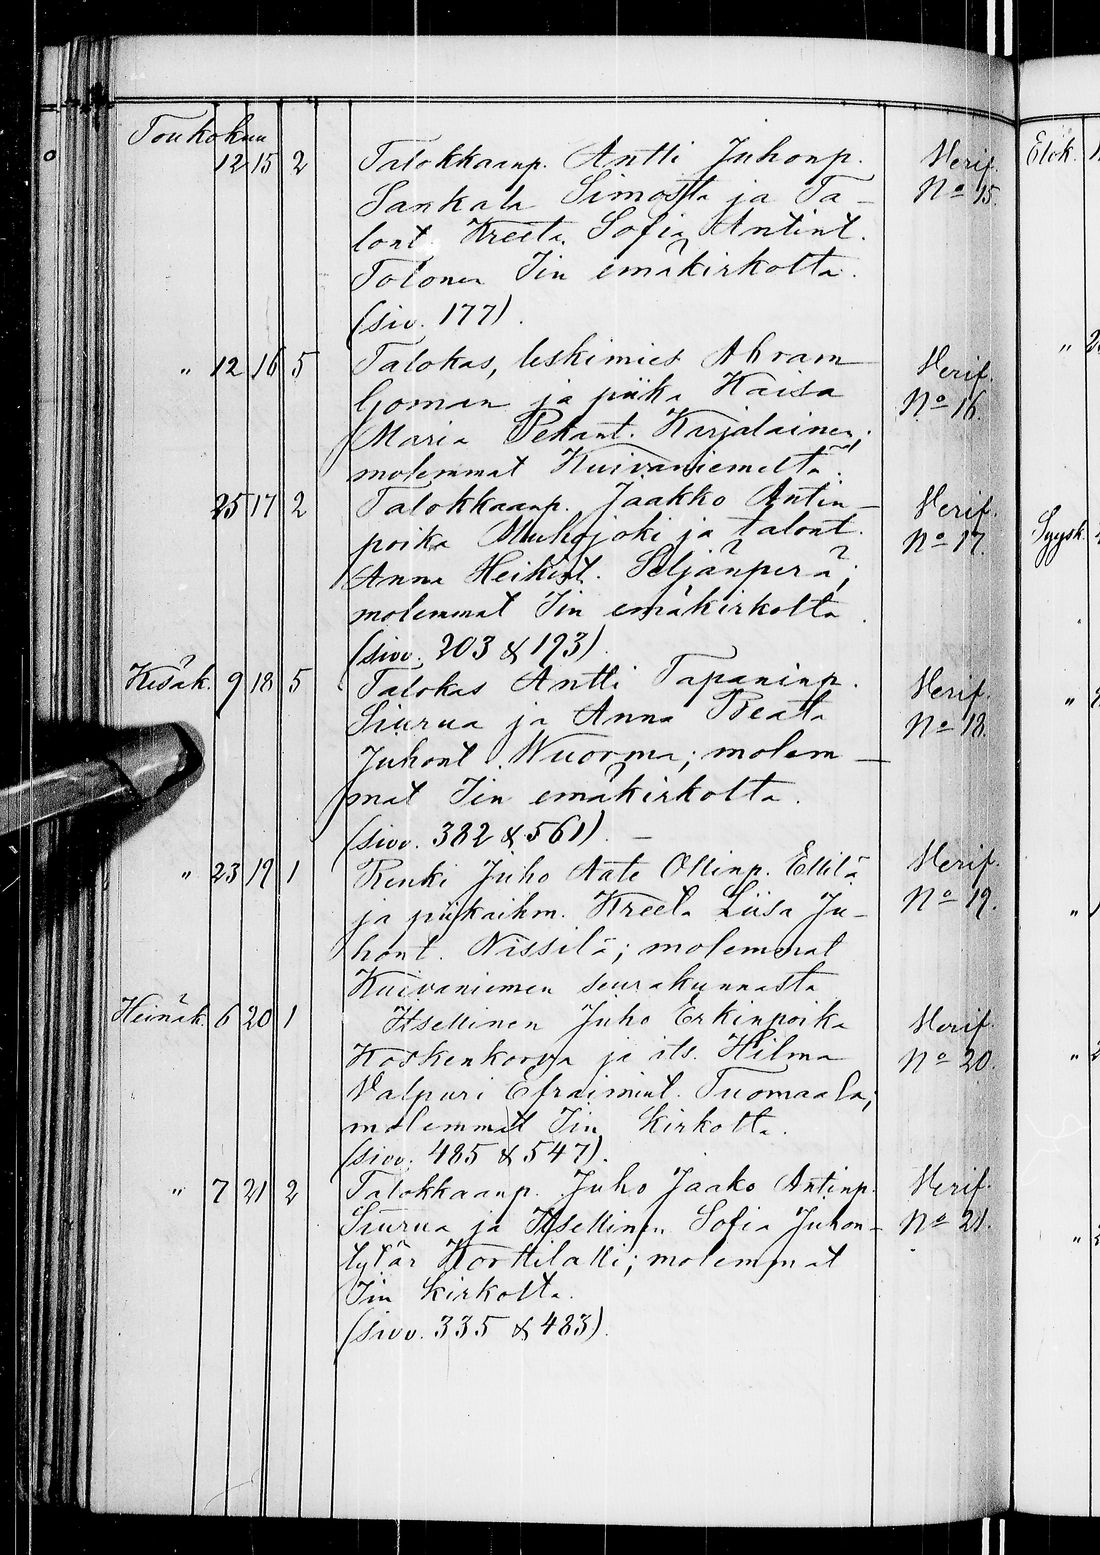 Toukokuu
12 15 2 Talokkaanp. Antti Juhonp. Verif.
Sankala Simosta ja Ta- No 15.
lont. Kreeta Sofia Antint.
Tolonen Iin emäkirkolta.
(siv. 177).
" 12 16 5 Talokas, leskimies Abram Verif.
Goman ja piika Kaisa No 16.
Maria Pekant. Karjalainen;
molemmat Kuivaniemeltä.
25 17 2 Talokkaanp. Jaakko Antin- Verif.
poika Muhojoki ja talont. No 17.
Anna Heikint. Seljänperä;
molemmat Iin emäkirkolta.
(sivv. 203 & 193).
Kesäk. 9 18 5 Talokas Antti Tapaninp. Verif.
Siurua ja Anna Beata No 18.
Juhont. Wuorma; molem-
mat Iin emäkirkolta.
(sivv. 382 & 561). –
" 23 19 1 Renki Juho Aate Ollinp. Ellilä Verif.
ja piikaihm. Kreeta Liisa Ju- No 19.
hont. Nissilä; molemmat
Kuivaniemen seurakunnasta
Heinäk. 6 20 1 Itsellinen Juho Erkinpoika Verif.
Koskenkorva ja its. Hilma No 20.
Valpuri Efraimint. Tuomaala;
molemmat Iin kirkolta.
(sivv. 485 & 547).
" 7 21 2 Talokkaanp. Juho Jaako Antinp. Verif.
Siurua ja Itsellinen Sofia Juhon- No 21.
tytär Korttilalli; molemmat
Iin kirkolta.
(sivv. 335 & 483).
Elok.
Syysk.